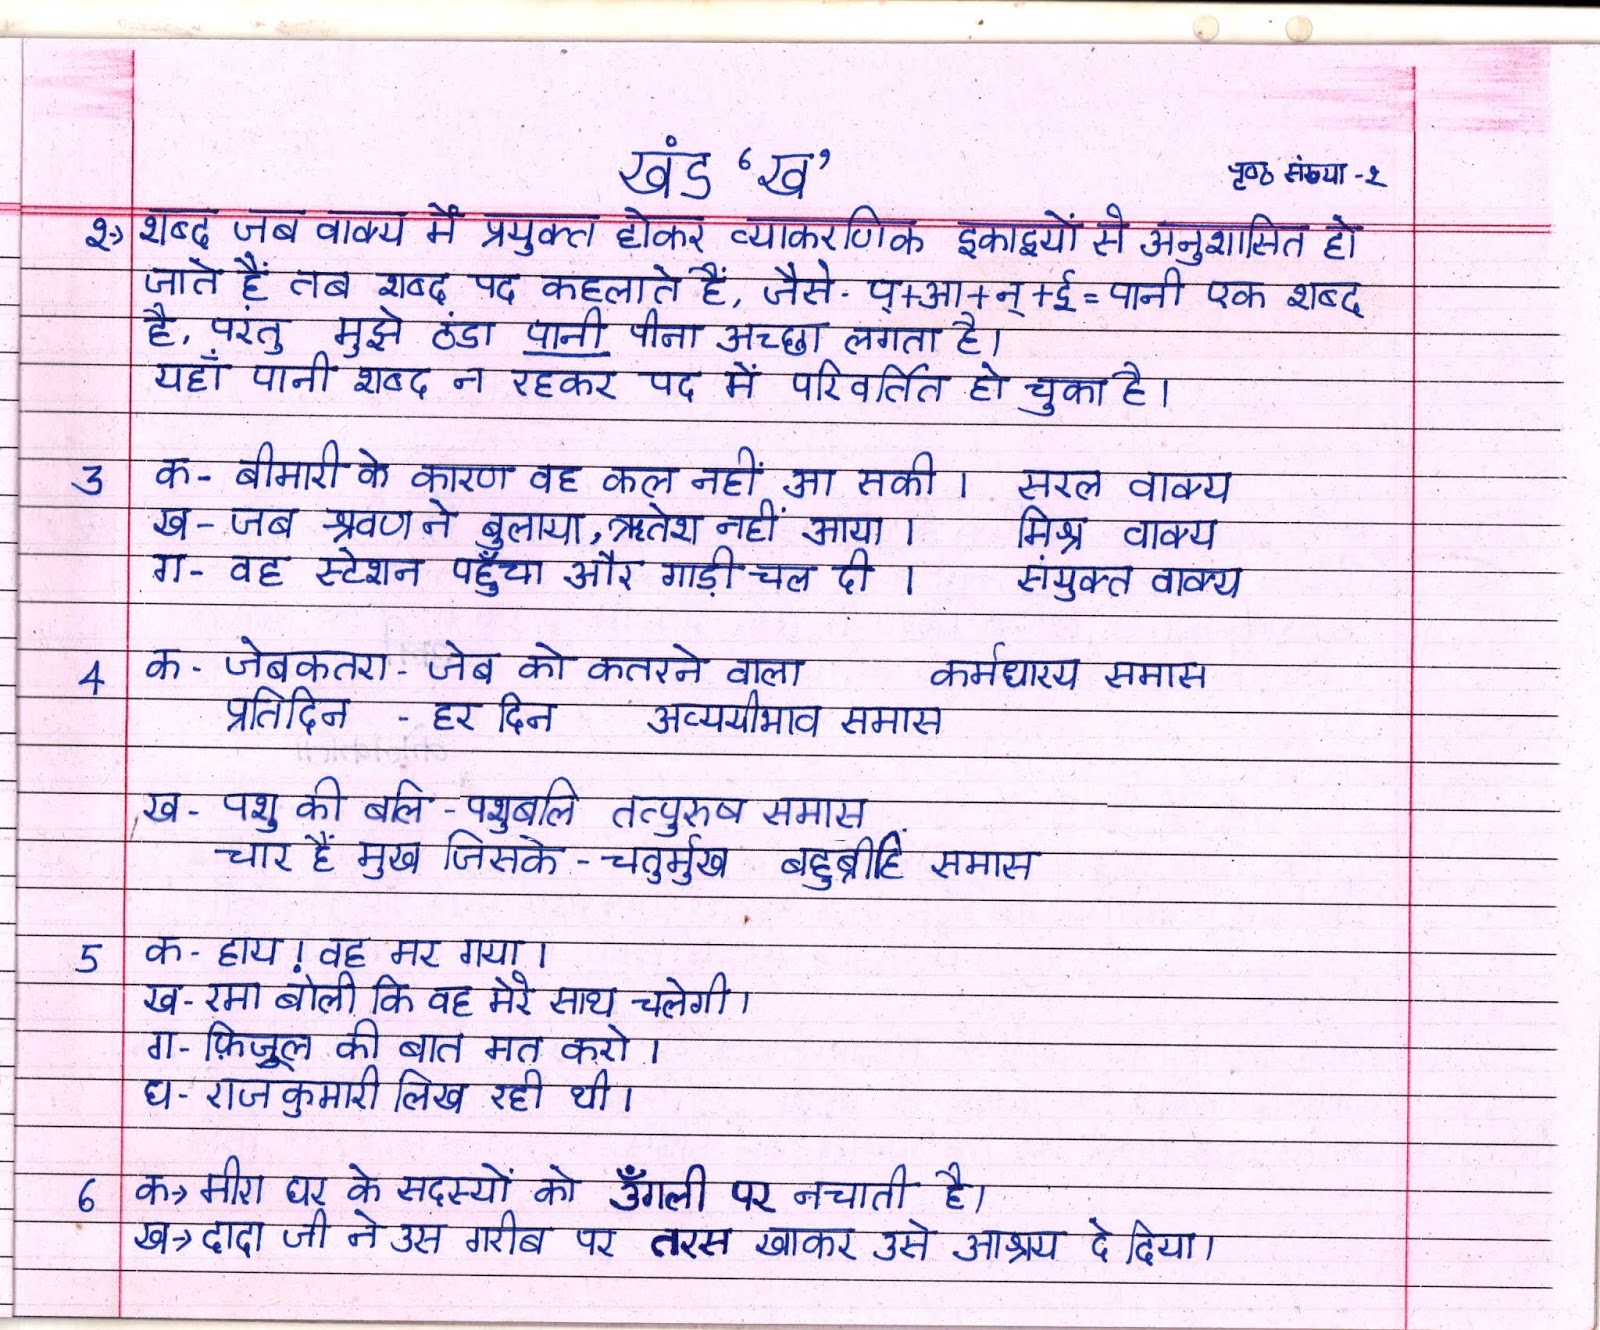 खंड ‘ख’
पृष्ठ संख्या -२
२→ शब्द जब वाक्य में प्रयुक्त होकर व्याकरणिक इकाइयों से अनुशासित हो
जाते हैं तब शब्द पद कहलाते हैं, जैसे- प्+आ+न्+ई=पानी एक शब्द
है, परंतु मुझे ठंडा पानी पीना अच्छा लगता है।
यहाँ पानी शब्द न रहकर पद में परिवर्तित हो चुका है।
3 क- बीमारी के कारण वह कल नहीं आ सकी । सरल वाक्य
ख- जब श्रवण ने बुलाया, ऋतेश नहीं आया । मिश्र वाक्य
ग- वह स्टेशन पहुँचा और गाड़ी चल दी । संयुक्त वाक्य
4 क- जेबकतरा- जेब को कतरने वाला कर्मधारय समास
प्रतिदिन - हर दिन अव्ययीभाव समास
ख- पशु की बलि - पशुबलि तत्पुरुष समास
चार हैं मुख जिसके - चतुर्मुख बहुब्रीहि समास
5 क- हाय ! वह मर गया ।
ख- रमा बोली कि वह मेरे साथ चलेगी।
ग- फ़िज़ूल की बात मत करो ।
घ- राजकुमारी लिख रही थी।
6 क→ मीरा घर के सदस्यों को उँगली पर नचाती है।
ख→ दादा जी ने उस गरीब पर तरस खाकर उसे आश्रय दे दिया।